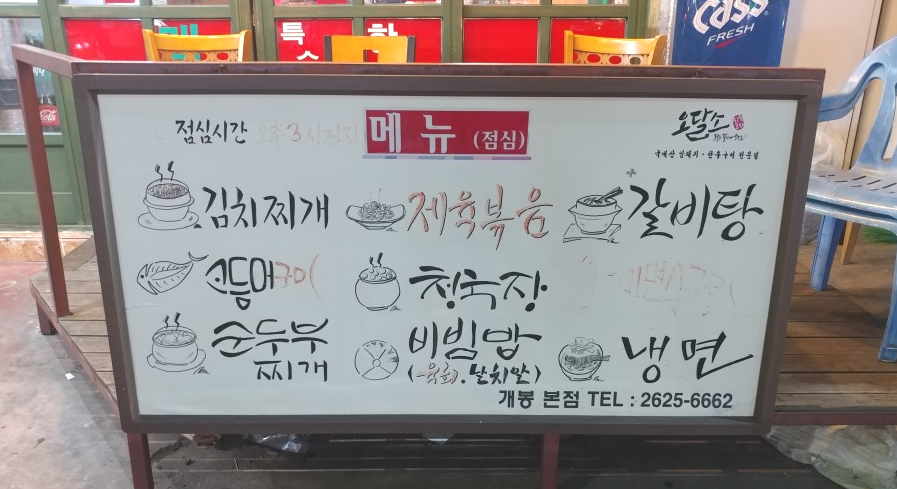 특 한
Cass
FRESH
점심시간 오후 3시까지
메뉴 (점심)
요달소
김치찌개
제육볶음
갈비탕
고등어구이
청국장
순두부
찌개
비빔밥
(육회, 날치알)
냉면
개봉 본점 TEL : 2625-6662